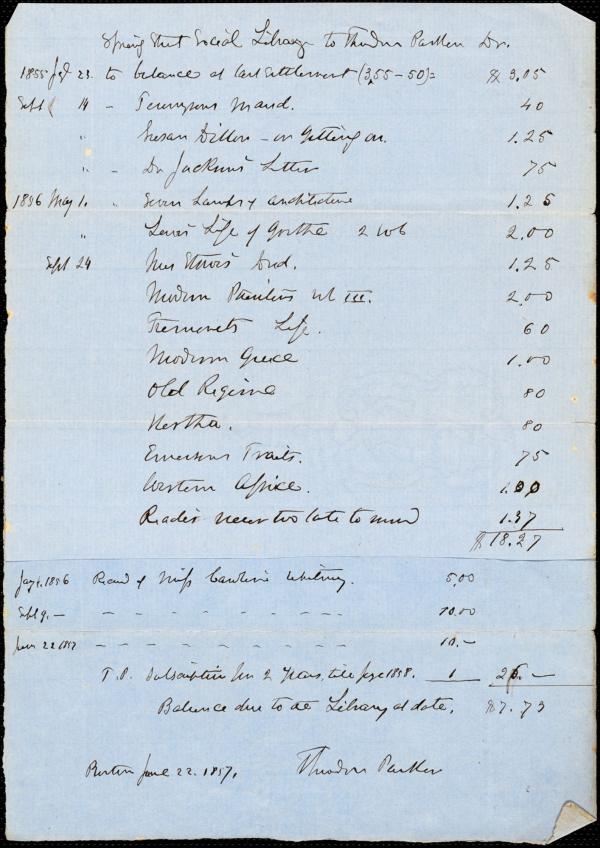 Spring Street Social Library to Theodore Parker Dr.
1855 23. to balance at last settlement (3,55 – 50) = $ 3.05
Sept 14 " Tennysons Maud. 40
" Susan Dillon – or Getting on. 1.25
" " Dr Jackson's Letter 75
1856 May 1. " Seven Lamps of architecture 1.25
" Lewes Life of Goethe 2 vols 2.00
Sept 24 Mrs 1.25
Modern Painters vol III. 2.00
Fremonts Life. 60
Modern Greece 1.00
Old Regime 80
Hertha. 80
Emersons Traits. 75
Western Africa. 1.00
Reade's never too late to mend 1.37
$ 18.27
1856 Recd of Miss Caroline Whitney. 5,00
Sept 9. – – – – – – – – 10.00
June 22 1857 – – – – – – – 10.–
T.P. subscription for 2 years, till 1858. 1 26.–
Balance due to the Library at date, $7.73
Boston June 22. 1857. Theodore Parker